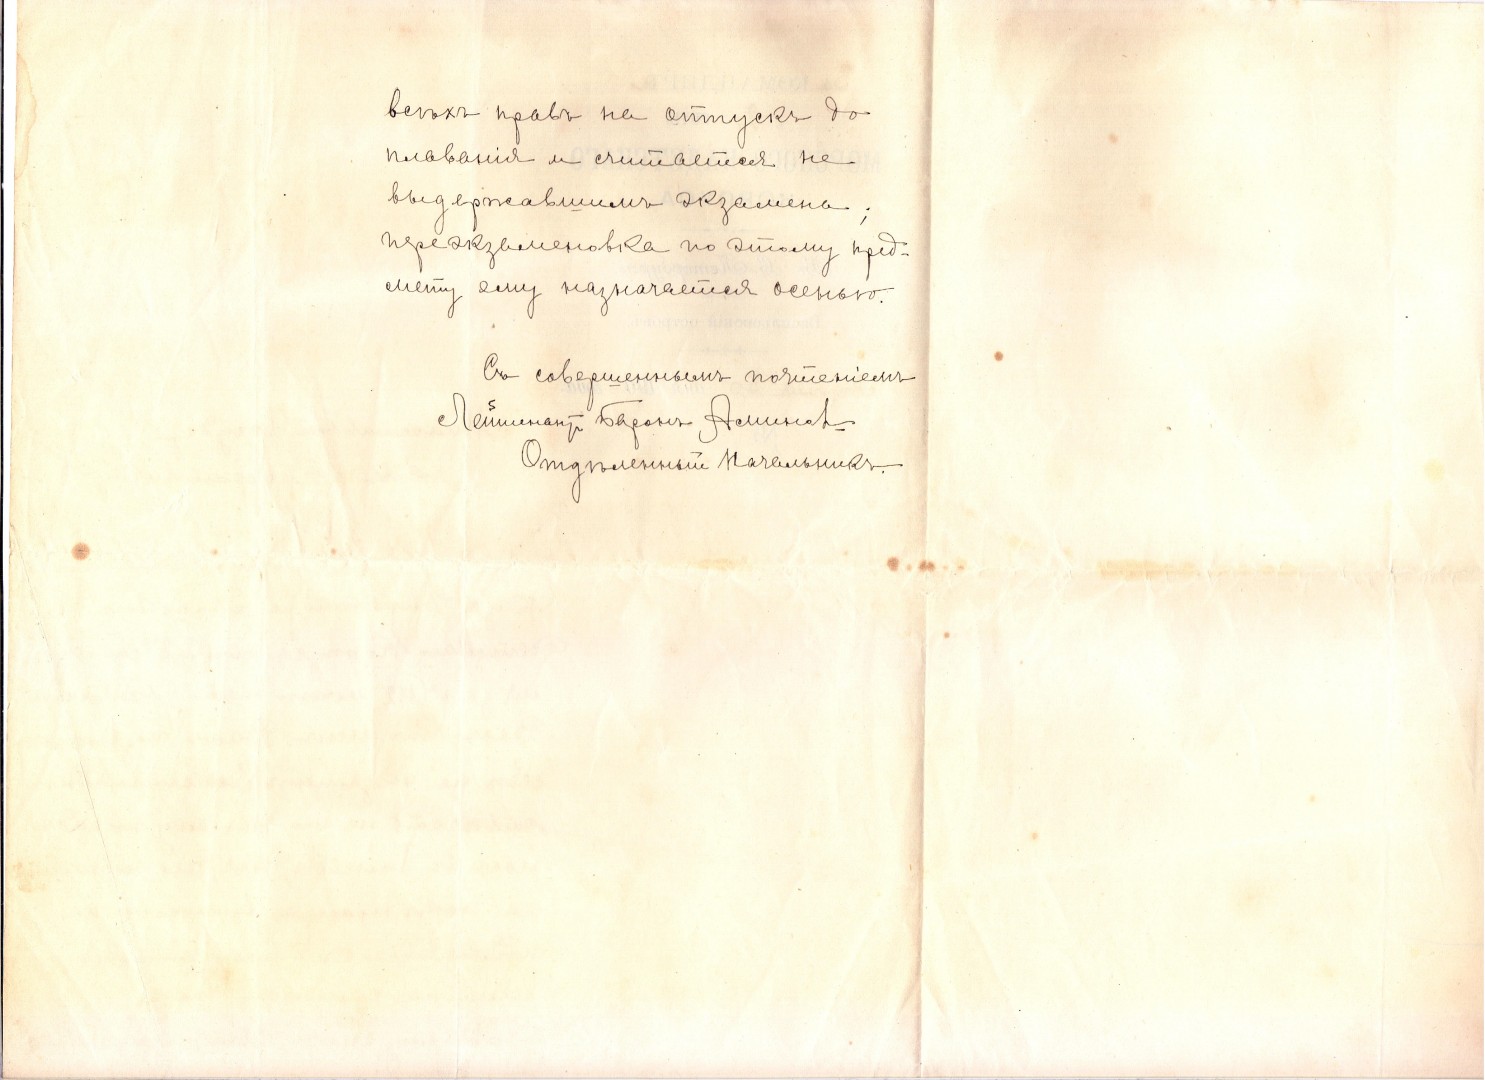 всѣхъ правъ на отпускъ до
плаванія и считается не
выдержавшимъ экзамена;
переэкзаменовка по этому пред-
мету ему назначается осенью.
Съ совершеннымъ почтеніемъ
Лейтенантъ Баронъ Аминов
Отдѣленный Начальникъ.